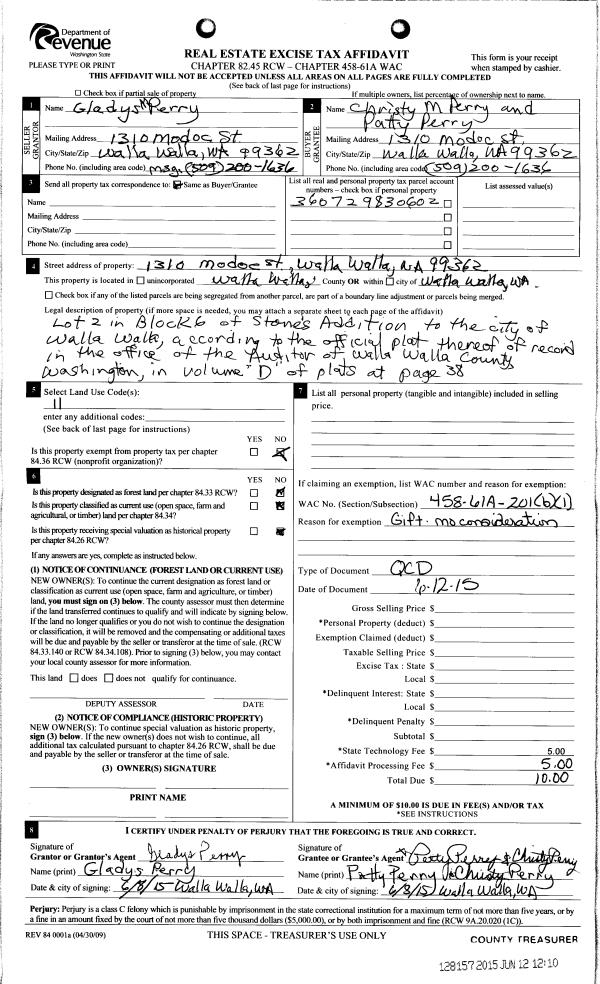 Department of
Revenue
Washington State
PLEASE TYPE OR PRINT
REAL ESTATE EXCISE TAX AFFIDAVIT
CHAPTER 82.45 RCW – CHAPTER 458-61A WAC
This form is your receipt
when stamped by cashier.
THIS AFFIDAVIT WILL NOT BE ACCEPTED UNLESS ALL AREAS ON ALL PAGES ARE FULLY COMPLETED
(See back of last page for instructions)
Check box if partial sale of property
If multiple owners, list percentage of ownership next to name.
1 Name Gladys M Perry
SELLER GRANTOR
Mailing Address 1310 Modoc St
City/State/Zip Walla Walla, WA 99362
Phone No. (including area code) msg. (509) 200-1636
2 Name Christy M Perry and
Patty Perry
BUYER GRANTEE
Mailing Address 1310 Modoc St.
City/State/Zip Walla Walla, WA 99362
Phone No. (including area code) (509) 200-1636
3 Send all property tax correspondence to: Same as Buyer/Grantee
Name
Mailing Address
City/State/Zip
Phone No. (including area code)
List all real and personal property tax parcel account
numbers – check box if personal property
360729830602
List assessed value(s)
4 Street address of property: 1310 Modoc St, Walla Walla, WA 99362
This property is located in unincorporated Walla Walla, County OR within city of Walla Walla, WA.
Check box if any of the listed parcels are being segregated from another parcel, are part of a boundary line adjustment or parcels being merged.
Legal description of property (if more space is needed, you may attach a separate sheet to each page of the affidavit)
Lot 2 in Block 6 of Stone's Addition to the city of
Walla Walla, according to the official plat thereof of record
in the office of the Auditor of Walla Walla County
Washington, in volume "D" of plats at page 38
5 Select Land Use Code(s):
11
enter any additional codes:
(See back of last page for instructions)
YES NO
Is this property exempt from property tax per chapter
84.36 RCW (nonprofit organization)?
6 YES NO
Is this property designated as forest land per chapter 84.33 RCW?
Is this property classified as current use (open space, farm and
agricultural, or timber) land per chapter 84.34?
Is this property receiving special valuation as historical property
per chapter 84.26 RCW?
If any answers are yes, complete as instructed below.
(1) NOTICE OF CONTINUANCE (FOREST LAND OR CURRENT USE)
NEW OWNER(S): To continue the current designation as forest land or
classification as current use (open space, farm and agriculture, or timber)
land, you must sign on (3) below. The county assessor must then determine
if the land transferred continues to qualify and will indicate by signing below.
If the land no longer qualifies or you do not wish to continue the designation
or classification, it will be removed and the compensating or additional taxes
will be due and payable by the seller or transferor at the time of sale. (RCW
84.33.140 or RCW 84.34.108). Prior to signing (3) below, you may contact
your local county assessor for more information.
This land does does not qualify for continuance.
DEPUTY ASSESSOR DATE
(2) NOTICE OF COMPLIANCE (HISTORIC PROPERTY)
NEW OWNER(S): To continue special valuation as historic property,
sign (3) below. If the new owner(s) does not wish to continue, all
additional tax calculated pursuant to chapter 84.26 RCW, shall be due
and payable by the seller or transferor at the time of sale.
(3) OWNER(S) SIGNATURE
PRINT NAME
7 List all personal property (tangible and intangible) included in selling
price.
If claiming an exemption, list WAC number and reason for exemption:
WAC No. (Section/Subsection) 458-61A-201(b)(1)
Reason for exemption Gift - no consideration
Type of Document QCD
Date of Document 6-12-15
Gross Selling Price $
*Personal Property (deduct) $
Exemption Claimed (deduct) $
Taxable Selling Price $
Excise Tax : State $
Local $
*Delinquent Interest: State $
Local $
*Delinquent Penalty $
Subtotal $
*State Technology Fee $ 5.00
*Affidavit Processing Fee $ 5.00
Total Due $ 10.00
A MINIMUM OF $10.00 IS DUE IN FEE(S) AND/OR TAX
*SEE INSTRUCTIONS
8 I CERTIFY UNDER PENALTY OF PERJURY THAT THE FOREGOING IS TRUE AND CORRECT.
Signature of
Grantor or Grantor's Agent Gladys Perry
Name (print) Gladys Perry
Date & city of signing: 6/8/15 Walla Walla, WA
Signature of
Grantee or Grantee's Agent Patty Perry & Christy Perry
Name (print) Patty Perry & Christy Perry
Date & city of signing: 6/3/15 Walla Walla, WA
Perjury: Perjury is a class C felony which is punishable by imprisonment in the state correctional institution for a maximum term of not more than five years, or by
a fine in an amount fixed by the court of not more than five thousand dollars ($5,000.00), or by both imprisonment and fine (RCW 9A.20.020 (1C)).
REV 84 0001a (04/30/09)
THIS SPACE - TREASURER'S USE ONLY
COUNTY TREASURER
128157 2015 JUN 12 12:10